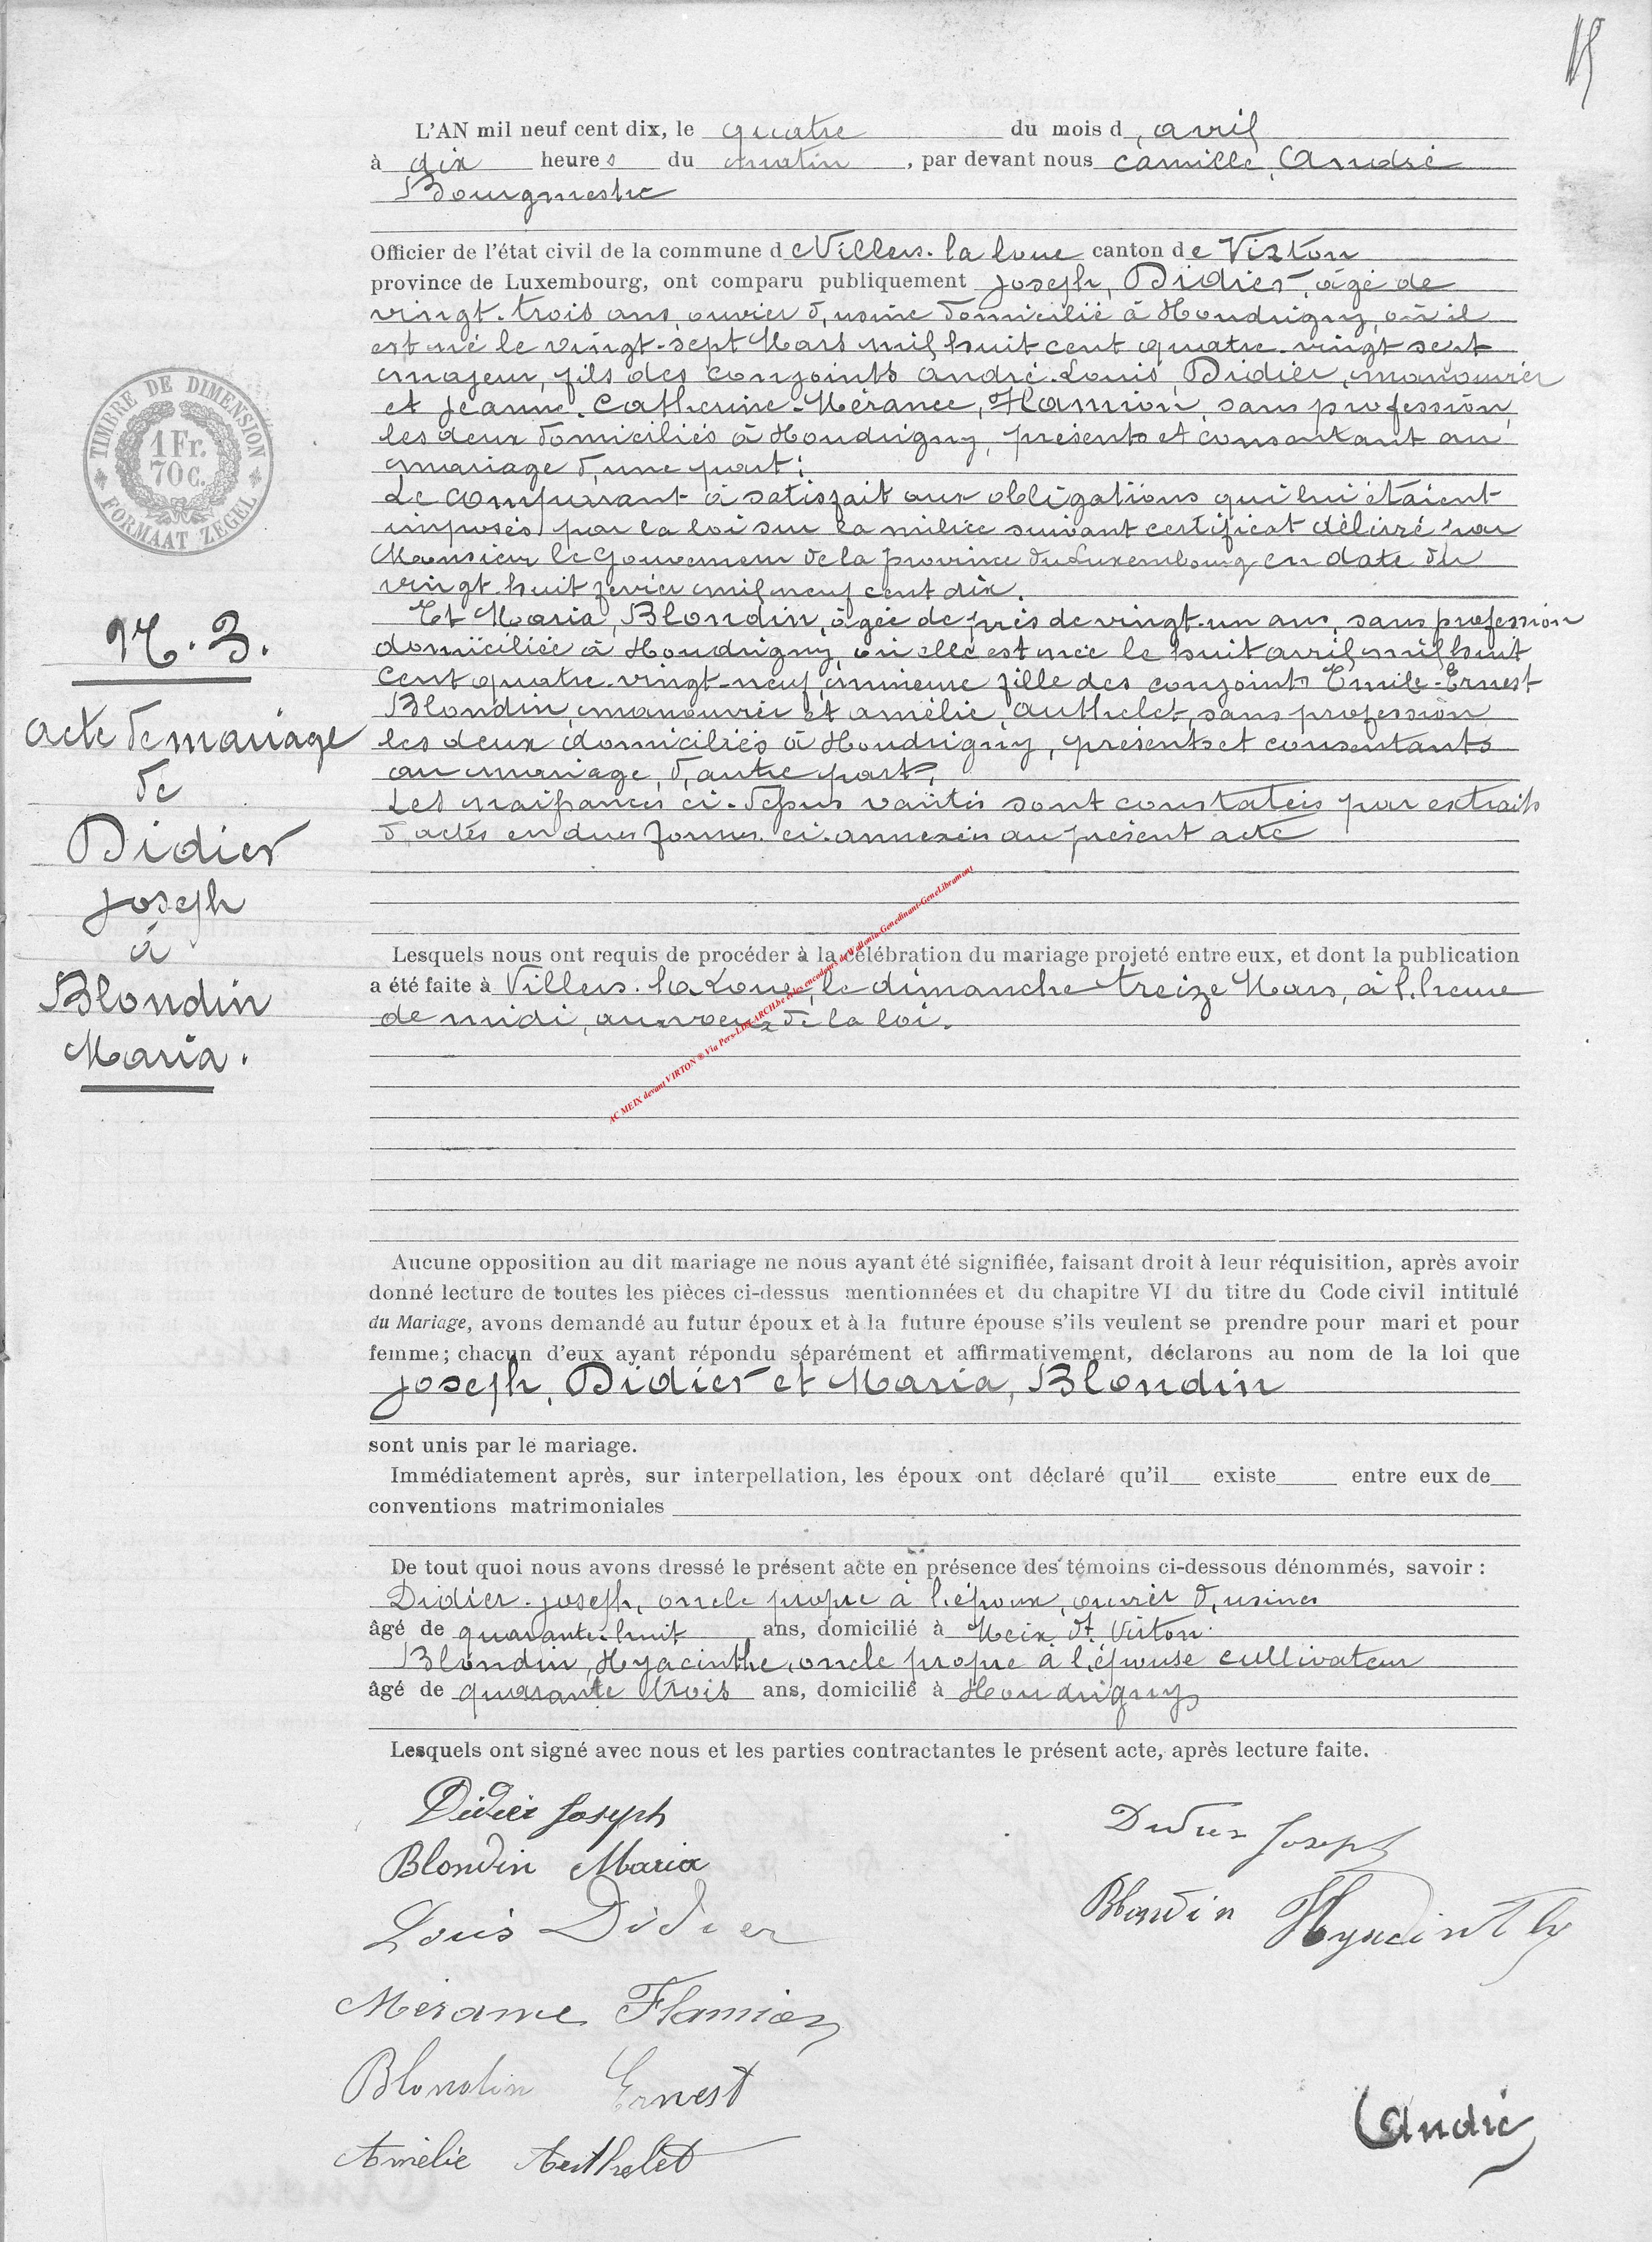 15
L'AN mil neuf cent dix, le quatre du mois d, avril
à dix heures du matin, par devant nous Camille, André
Bourgmestre
Officier de l'état civil de la commune de Villers-la loue canton de Virton
province de Luxembourg, ont comparu publiquement Joseph, Didier, âgé de
vingt-trois ans, ouvrier d,usine domicilié à Houdrigny, où il
est né le vingt-sept Mars mil huit cent quatre-vingt sept
majeur, fils des conjoints André-Louis Didier, manouvrier
et Jeanne-Catherine-Mérance, Flamion, sans profession,
les deux domiciliés à Houdrigny, présents et consentant au
mariage d,une part;
Le comparant à satisfait aux obligations qui lui étaient
imposés par la loi sur la milice suivant certificat délivré par
Monsieur le Gouverneur de la province du Luxembourg en date du
vingt-huit fevier mil neuf cent dix.
Et Maria, Blondin, âgée de près de vingt-un ans, sans profession
domiciliée à Houdrigny, où elle est née le huit avril mil huit
Cent quatre-vingt-neuf, mineure fille des conjoints Emile-Ernest
Blondin, manouvrier et Amélie, Authelet, sans profession
les deux domiciliés à Houdrigny, présents et consentants
au mariage, d,autre part,
Les naissances ci-dessus vantés sont constateés par extraits
d'actes en dues formes ci-annexés au présent acte
TIMBRE DE DIMENSION
1 Fr.
70 c.
FORMAAT ZEGEL
N. 3.
Acte de mariage
de
Didier
Joseph
à
Blondin
Maria.
Lesquels nous ont requis de procéder à la célébration du mariage projeté entre eux, et dont la publication
a été faite à Villers-la Loue, le dimanche treize Mars, à l,heure
de midi, au voeux de la loi.
AC MEIX devant VIRTON ® Via Pers-LDH-ARCH.be et les encodeurs de Wallonia-Genedinant-GeneLibramont
Aucune opposition au dit mariage ne nous ayant été signifiée, faisant droit à leur réquisition, après avoir
donné lecture de toutes les pièces ci-dessus mentionnées et du chapitre VI du titre du Code civil intitulé
du Mariage, avons demandé au futur époux et à la future épouse s'ils veulent se prendre pour mari et pour
femme; chacun d'eux ayant répondu séparément et affirmativement, déclarons au nom de la loi que
Joseph, Didier et Maria, Blondin
sont unis par le mariage.
Immédiatement après, sur interpellation, les époux ont déclaré qu'il existe entre eux de
conventions matrimoniales
De tout quoi nous avons dressé le présent acte en présence des témoins ci-dessous dénommés, savoir :
Didier-Joseph, oncle propre à l,époux, ouvrier d,usines
âgé de quarante-huit ans, domicilié à Meix dt Virton
Blondin, Hyacinthe, oncle propre à l,épouse cultivateur
âgé de quarante trois ans, domicilié à Houdrigny
Lesquels ont signé avec nous et les parties contractantes le présent acte, après lecture faite.
Didier Joseph
Didier Joseph
Blondin Maria
Blondin Hyacinthe
Louis Didier
Mérance Flamion
Blondin Ernest
CAndré
Amélie Authelet